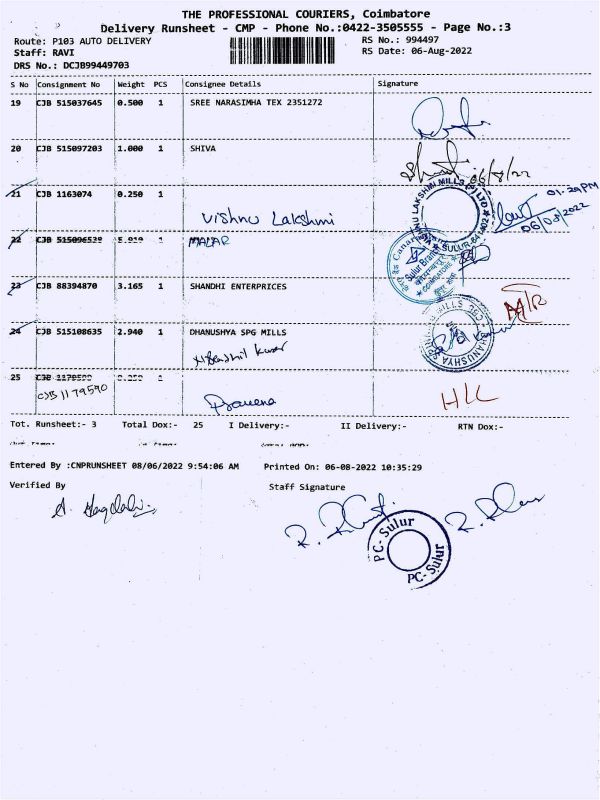 THE PROFESSIONAL COURIERS, Coimbatore
Delivery Runsheet - CMP - Phone No.:0422-3505555 - Page No.:3
Route: P103 AUTO DELIVERY
RS No.: 994497
Staff: RAVI
RS Date: 06-Aug-2022
DRS No.: DCJB99449703
S No Consignment No Weight PCS Consignee Details Signature
19 CJB 515037645 0.500 1 SREE NARASIMHA TEX 2351272
20 CJB 515097203 1.000 1 SHIVA
06/8/22
21 CJB 1163074 0.250 1
01.29PM
Vishnu Lakshmi
06/08/2022
22 CJB 515096529 5.919 1 MALAR
Sulur Branch
23 CJB 88394870 3.165 1 SHANDHI ENTERPRICES
24 CJB 515108635 2.940 1 DHANUSHYA SPG MILLS
25 CJB 1179590
CJB 1179590
Praveena
Tot. Runsheet:- 3 Total Dox:- 25 I Delivery:- II Delivery:- RTN Dox:-
Entered By :CNPRUNSHEET 08/06/2022 9:54:06 AM Printed On: 06-08-2022 10:35:29
Verified By Staff Signature
PC- Sulur
PC- Sulur